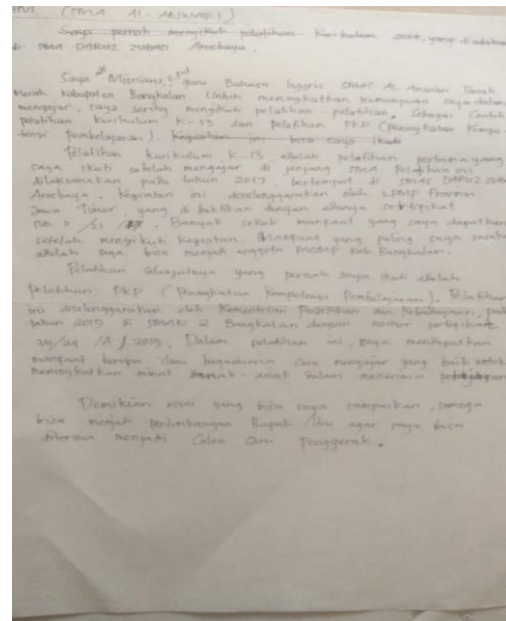 (SMA AL-ANWARI)
Saya pernah mengikuti pelatihan Kurikulum 2013, yang diadakan
di SMA DARUZ ZUBAD Arosbaya.
Saya guru Bahasa Inggris SMAS AL-Anwari Tanah
Merah Kabupaten Bangkalan. Untuk meningkatkan kemampuan saya dalam
mengajar, saya sering mengikuti pelatihan-pelatihan, sebagai contoh
pelatihan Kurikulum K-13 dan pelatihan PKP (Peningkatan Kompe-
tensi Pembelajaran). Kegiatan ini bisa saya ikuti
Pelatihan kurikulum K-13, adalah pelatihan pertama yang
saya ikuti setelah mengajar di jenjang SMA. Pelatihan ini
dilaksanakan pada tahun 2017, bertempat di SMAS DARUZ ZUBAD
Arosbaya. Kegiatan ini diselenggarakan oleh LPMP Provinsi
Jawa Timur, yang di buktikan dengan adanya sertipikat
Banyak sekali manfaat yang saya dapatkan
setelah mengikuti kegiatan. Manfaat yang paling saya
adalah saya bisa menjadi anggota MGMP Kab Bangkalan.
Pelatihan selanjutnya yang pernah saya ikuti adalah
pelatihan PKP (Peningkatan Kompetensi Pembelajaran). Pelatihan
ini diselenggarakan oleh Kementrian Pendidikan dan Kebudayaan, pada
tahun 2019 di SMAN 2 Bangkalan dengan nomor sertipikat
2019. Dalam pelatihan ini, saya mendapatkan
manfaat berupa ilmu bagaimana cara mengajar yang baik untuk
meningkatkan minat anak-anak dalam menerima pelajaran
Demikian esai yang bisa saya sampaikan, semoga
bisa menjadi pertimbangan Bapak/Ibu agar saya bisa
diterima menjadi Calon Guru Penggerak.